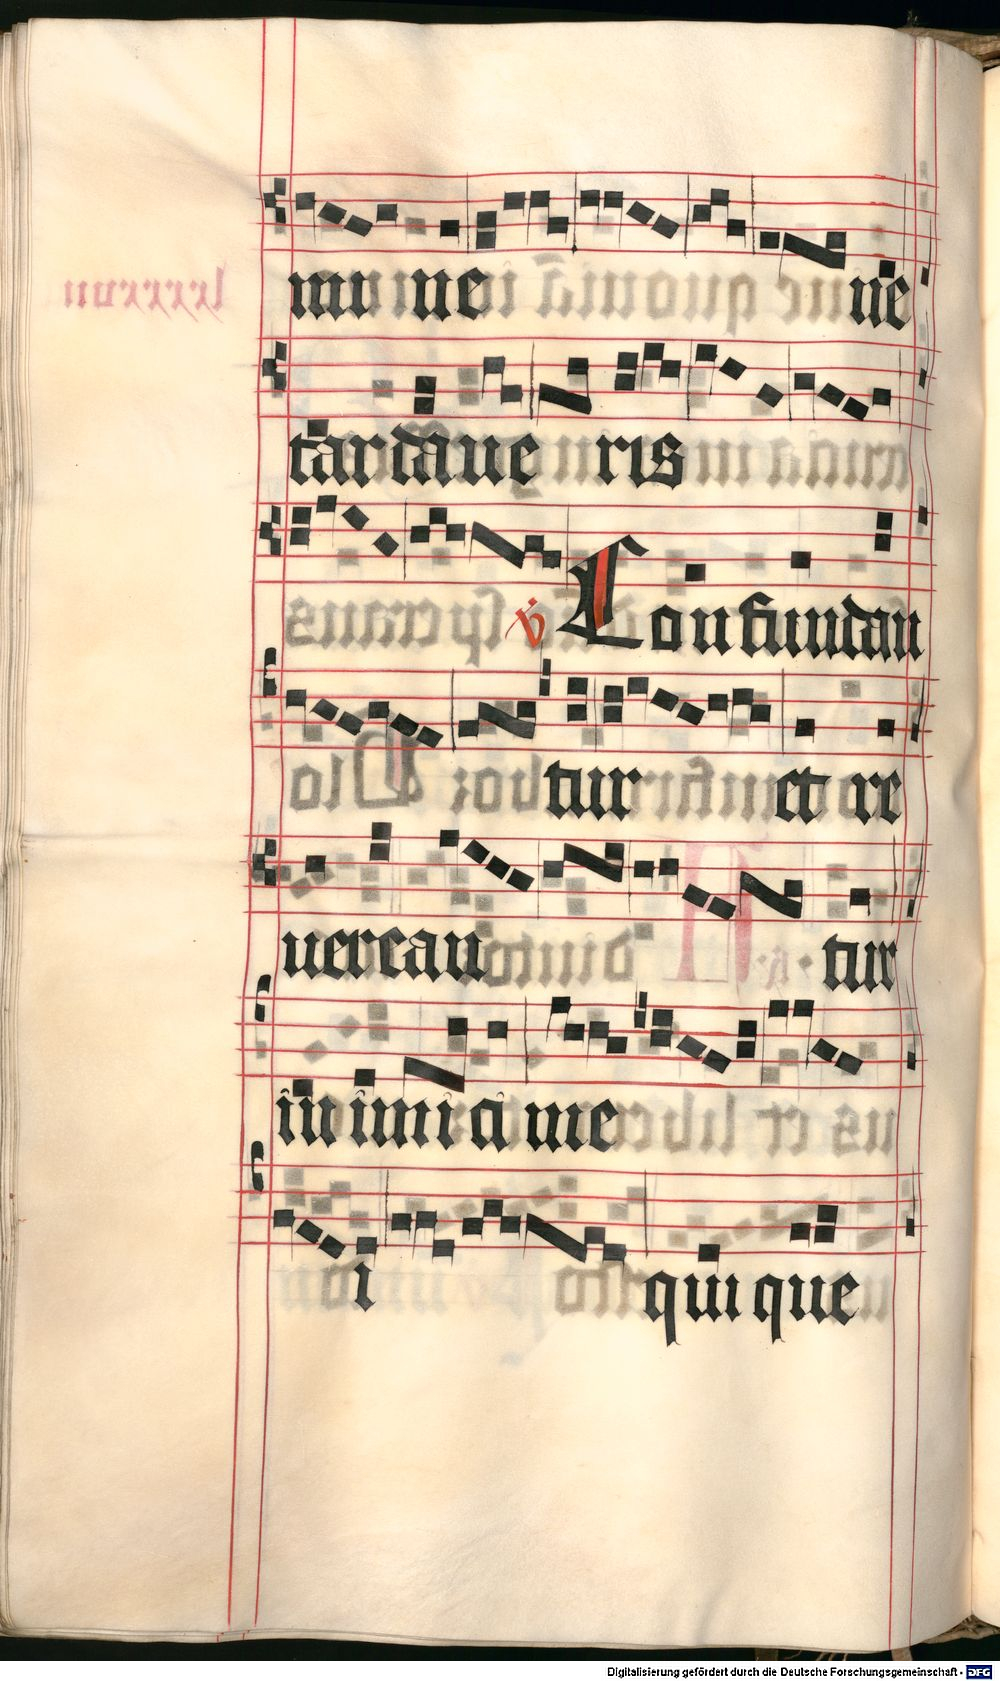 mi ne ne
tardaue ris
v̇ Confundan
tur et re
uereau tur
inimici me
i qui que
Digitalisierung gefördert durch die Deutsche Forschungsgemeinschaft - DFG